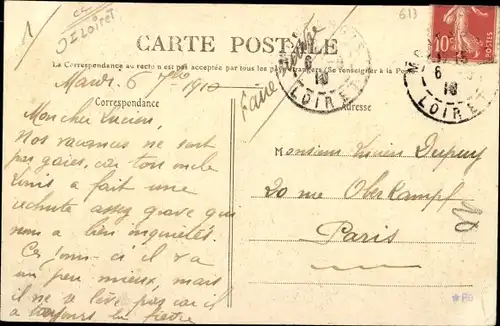 1
Loiret
613
10c
POSTES
CARTE POSTALE
La Correspondance au recto n'est pas acceptée par tous les pays étrangers (Se renseigner à la Poste)
Mardi 6 7bre 1910
Faire suivre
6
10
LOIRET
6
10
LOIRET
Correspondance
Adresse
Mon cher Lucien,
Nos vacances ne sont
pas gaies, car ton oncle
Louis a fait une
rechute assez grave qui
nous a bien inquiétés.
Ces jours-ci il va
un peu mieux, mais
il ne se lève pas car il
a toujours la fièvre
Monsieur Lucien Dupuy
20 rue Oberkampf
Paris